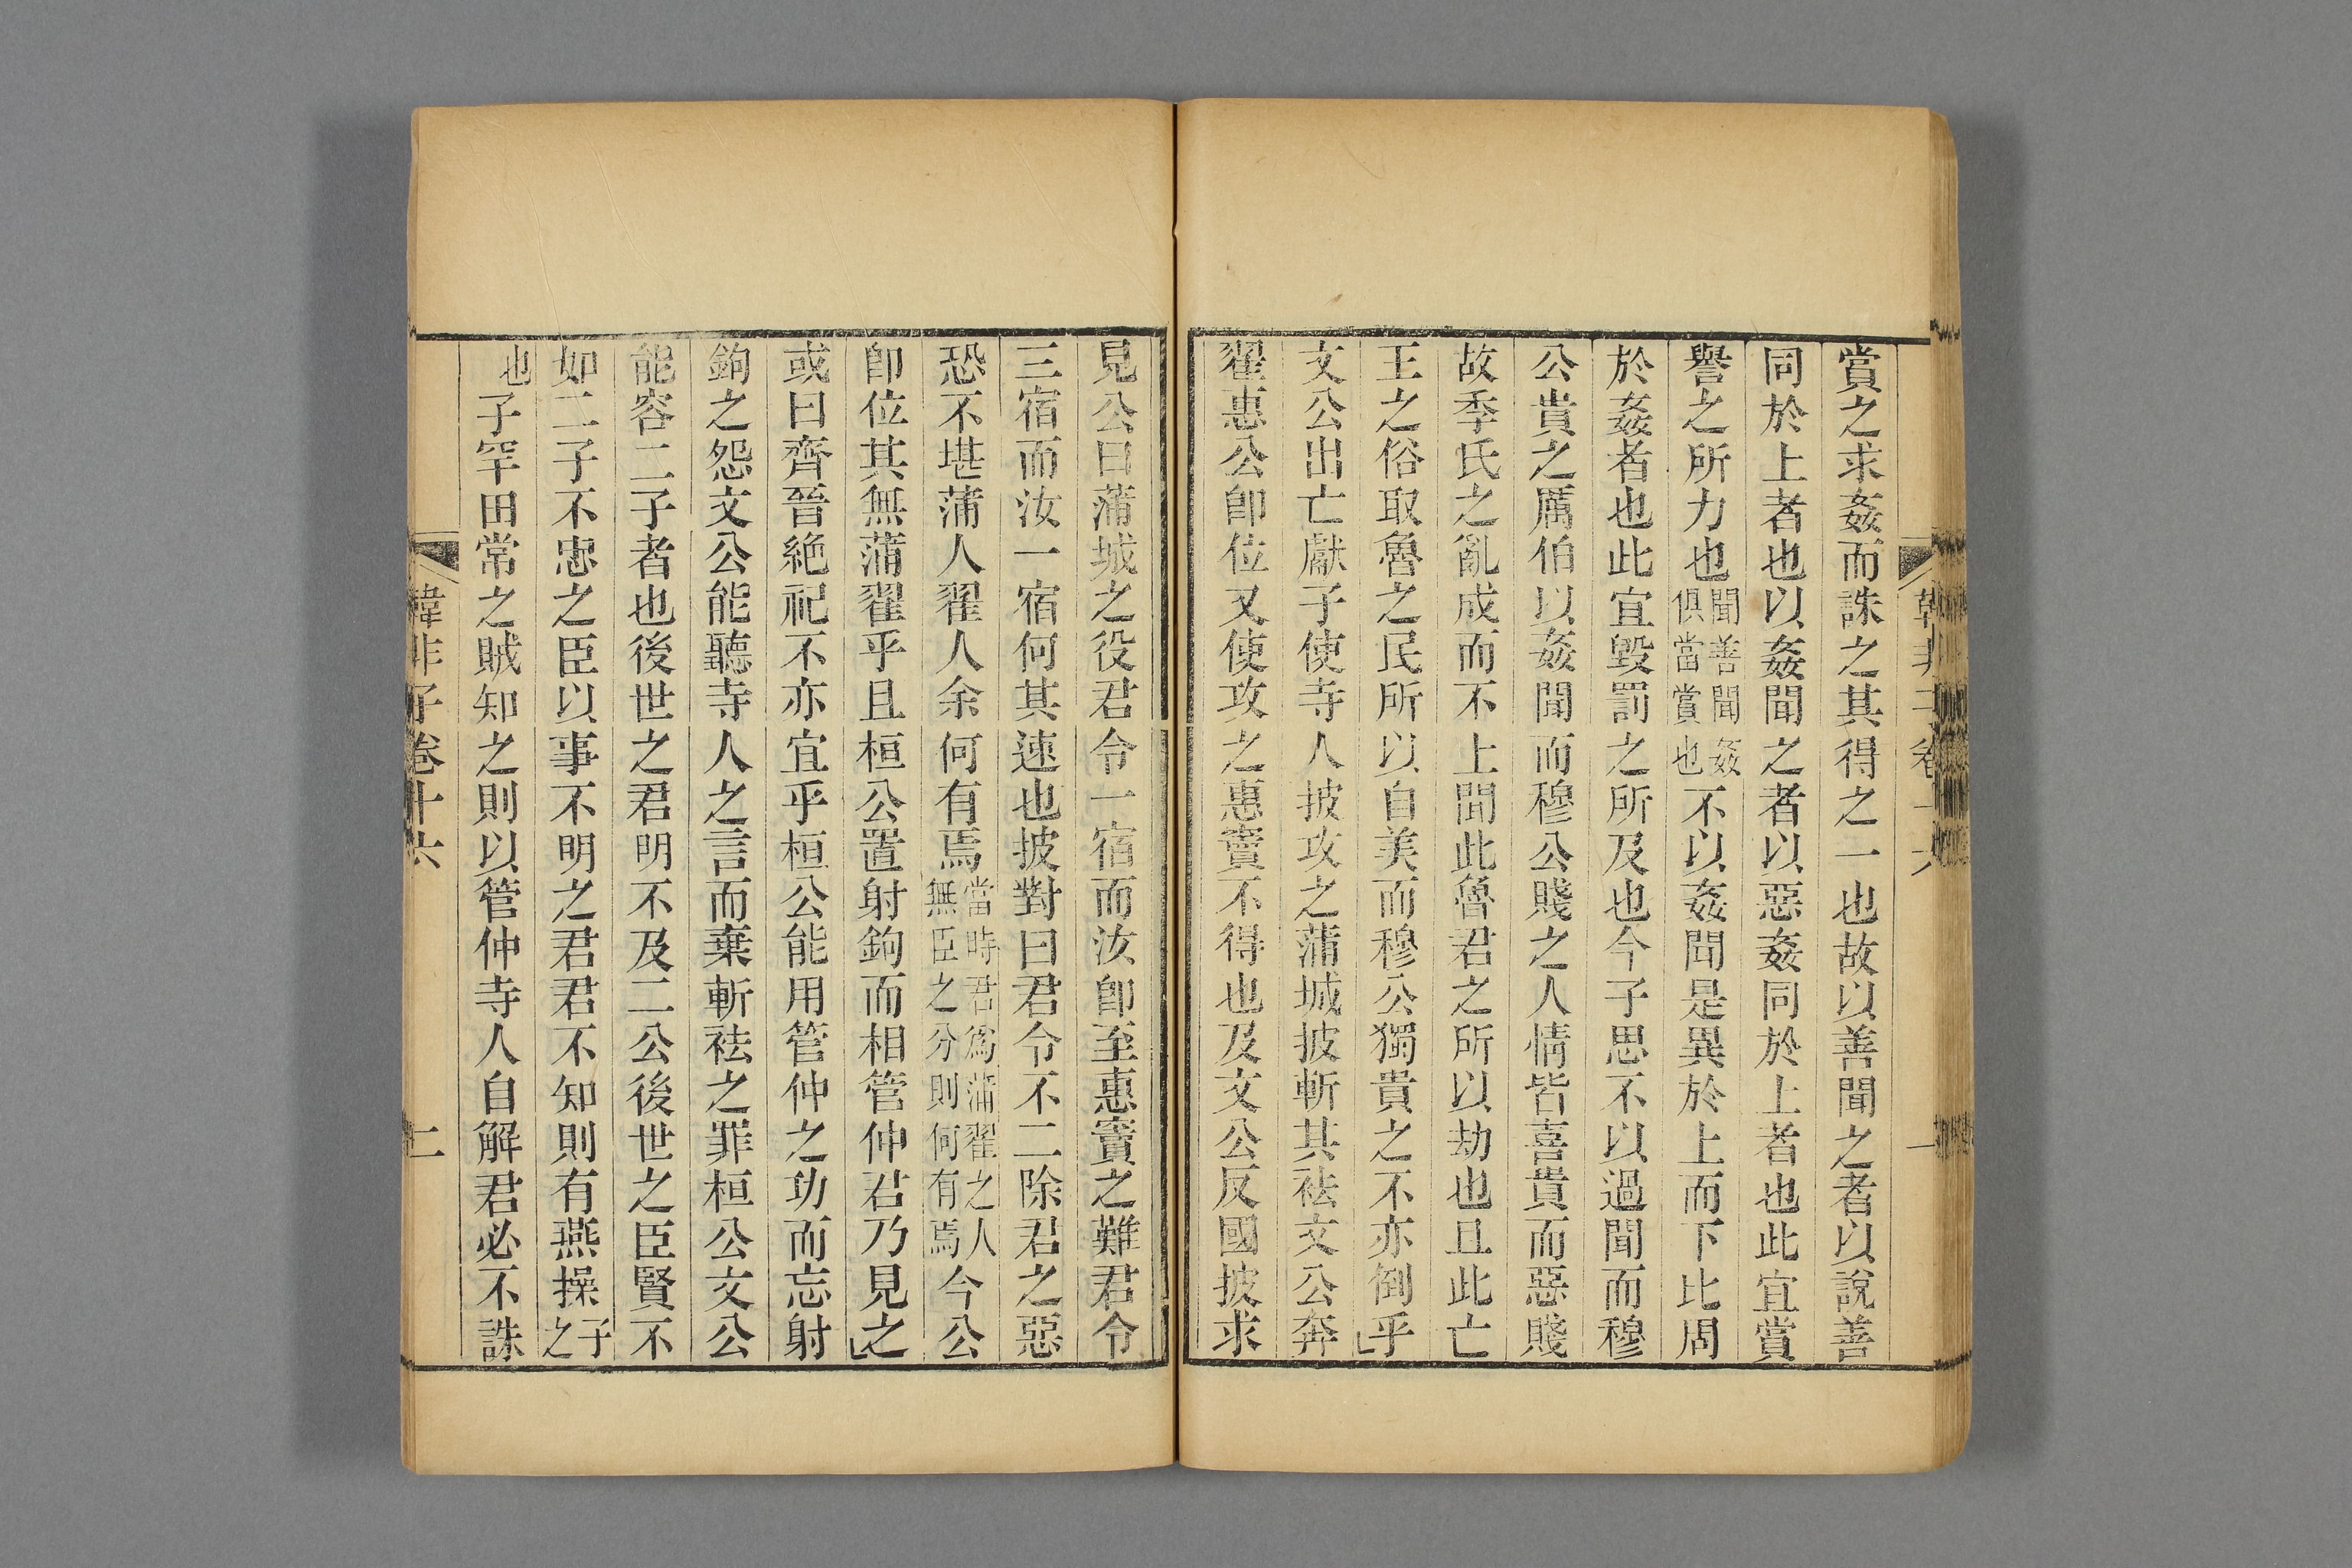 賞之求姦而誅之其得之一也故以善聞之者以說善
同於上者也以姦聞之者以惡姦同於上者也此宜賞
譽之所力也聞善聞姦俱當賞也不以姦聞是異於上而下比周
於姦者也此宜毀罰之所及也今子思不以過聞而穆
公貴之厲伯以姦聞而穆公賤之人情皆喜貴而惡賤
故季氏之亂成而不上聞此魯君之所以劫也且此亡
王之俗取魯之民所以自美而穆公獨貴之不亦倒乎
文公出亡獻子使寺人披攻之蒲城披斬其袪文公奔
翟惠公卽位又使攻之惠竇不得也及文公反國披求
韓非子卷十六 一
見公曰蒲城之役君令一宿而汝卽至惠竇之難君令
三宿而汝一宿何其速也披對曰君令不二除君之惡
恐不堪蒲人翟人余何有焉當時君爲蒲翟之人無臣之分則何有焉今公
卽位其無蒲翟乎且桓公置射鉤而相管仲君乃見之
或曰齊晉絶祀不亦宜乎桓公能用管仲之功而忘射
鉤之怨文公能聽寺人之言而棄斬袪之罪桓公文公
能容二子者也後世之君明不及二公後世之臣賢不
如二子不忠之臣以事不明之君君不知則有燕操子之
也子罕田常之賊知之則以管仲寺人自解君必不誅
韓非子卷十六 二